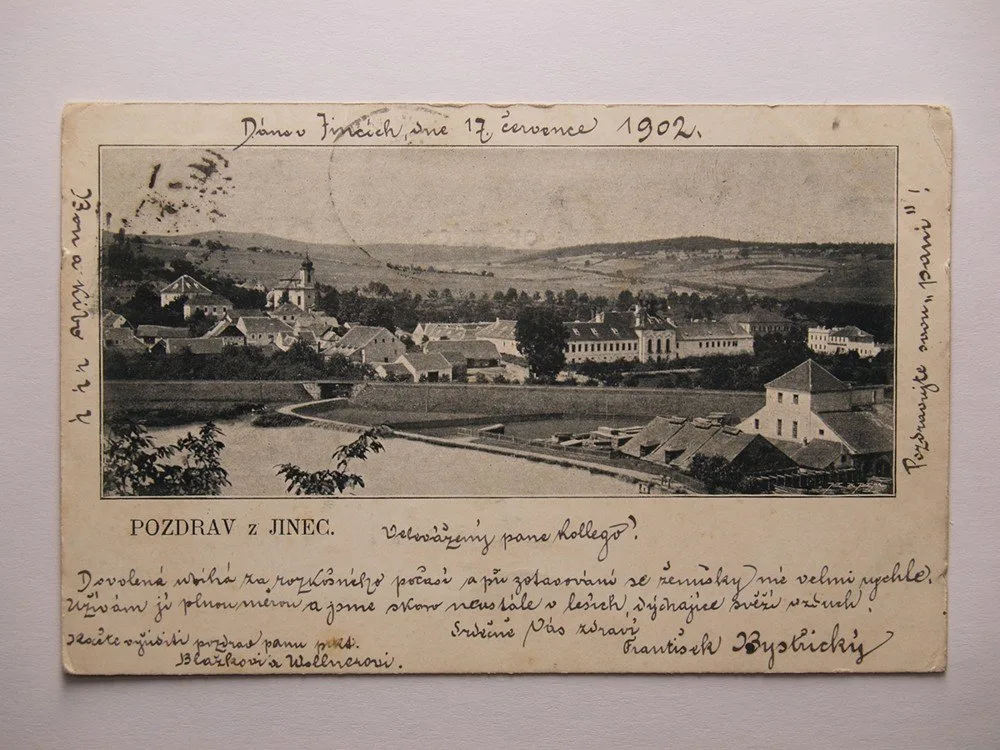 Dáno v Jincích, dne 17. července 1902.
POZDRAV z JINEC.
Velevážený pane kollego!
Dovolená ubíhá za rozkošného počasí a při zotavování se ženušky mé velmi rychle.
Užívám jí plnou měrou a jsme skoro neustále v lesích, dýchajíce svěží vzduch!
Srdečně Vás zdraví
František Bystřický
Račte vyříditi pozdrav panu
Blažkovi a Wollnerovi.
Pozdravujte svou „paní"!